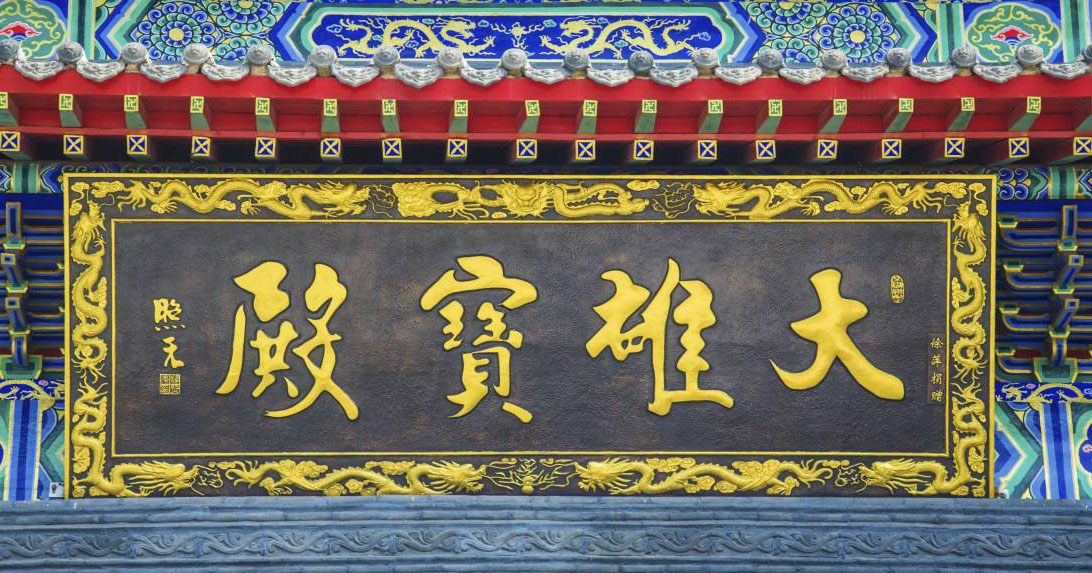 大雄寶殿
徐萍捐贈
照元